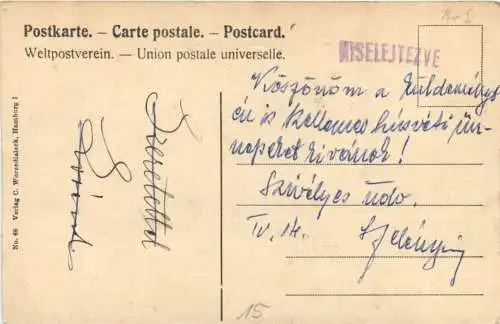 Postkarte. – Carte postale. – Postcard.
Weltpostverein. — Union postale universelle.
KISELEJTEZVE
Köszönöm a küldeményt
én is kellemes húsvéti ün-
nepeket kívánok!
Szívélyes üdv.
IV. 14.
Tisztelettel
15
No. 68 Verlag C. Worzedialeck, Hamburg I